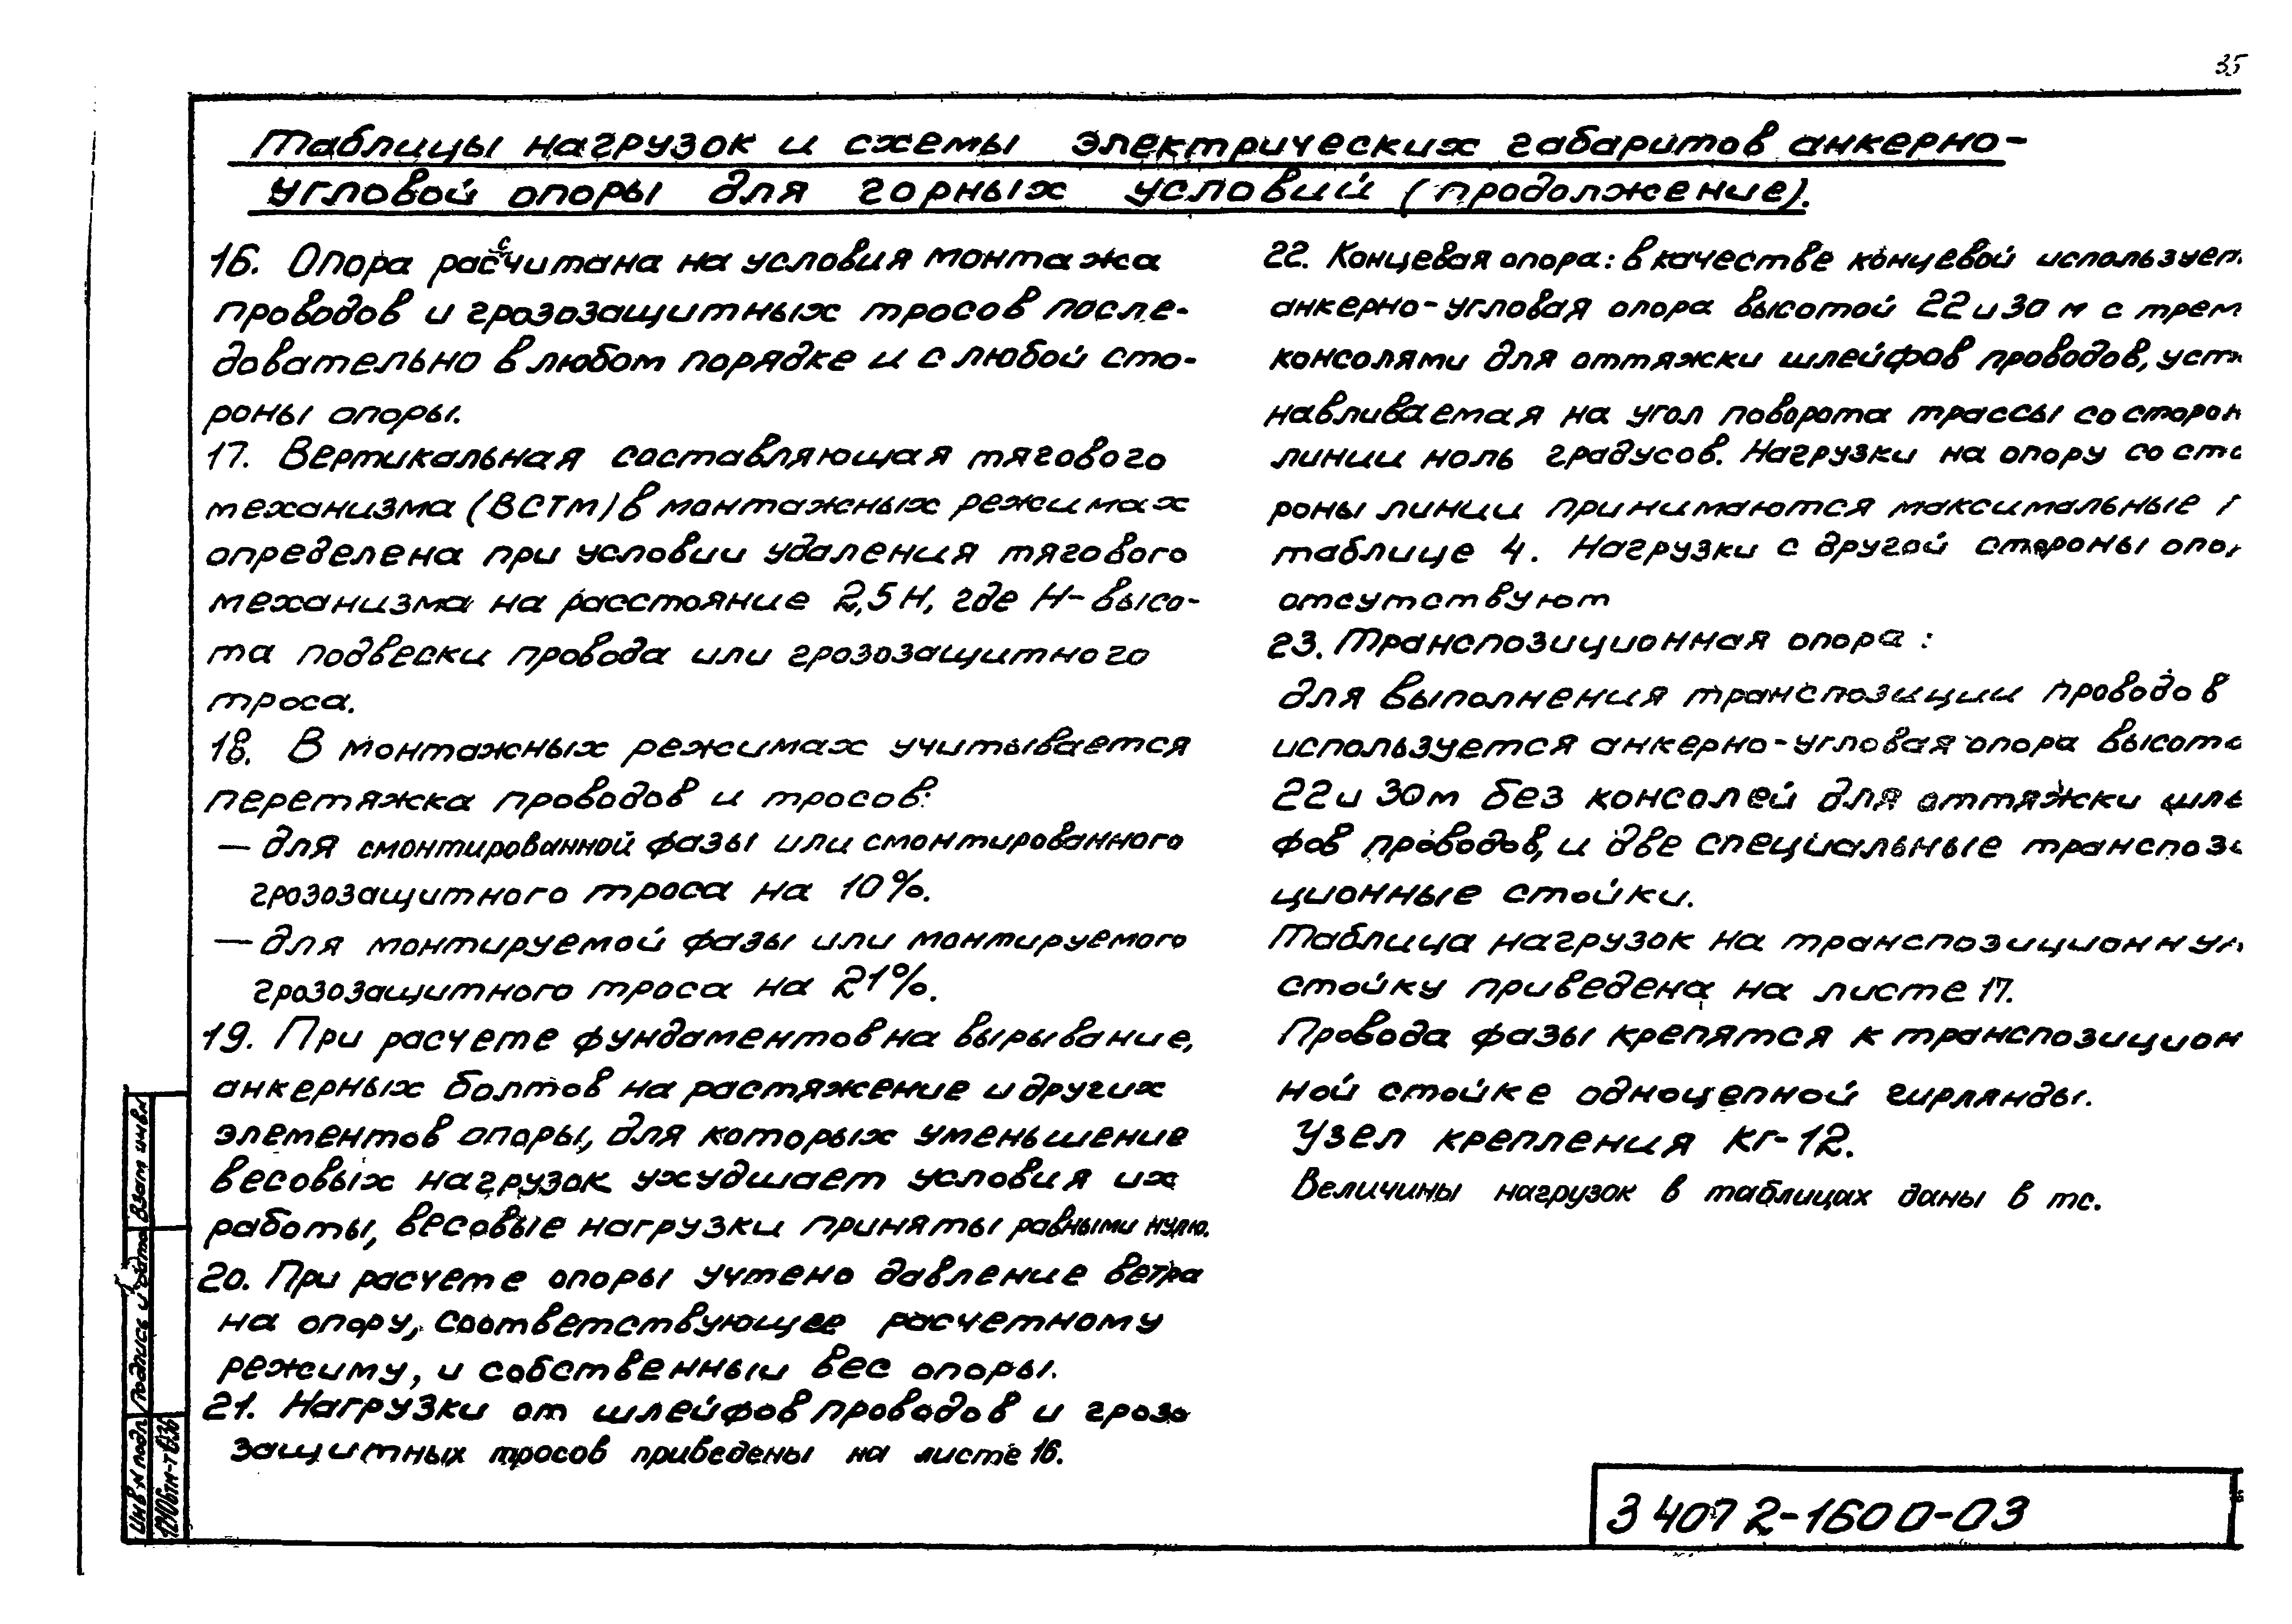 35
Таблицы нагрузок и схемы электрических габаритов анкерно-
угловой опоры для горных условий (продолжение).
16. Опора рассчитана на условия монтажа
проводов и грозозащитных тросов после-
довательно в любом порядке и с любой сто-
роны опоры.
17. Вертикальная составляющая тягового
механизма (ВСТМ) в монтажных режимах
определена при условии удаления тягового
механизма на расстояние 2,5Н, где Н-высо-
та подвески провода или грозозащитного
троса.
18. В монтажных режимах учитывается
перетяжка проводов и тросов:
— для смонтированной фазы или смонтированного
грозозащитного троса на 10%.
— для монтируемой фазы или монтируемого
грозозащитного троса на 21%.
19. При расчете фундаментов на вырывание,
анкерных болтов на растяжение и других
элементов опоры, для которых уменьшение
весовых нагрузок ухудшает условия их
работы, весовые нагрузки приняты равными нулю.
20. При расчете опоры учтено давление ветра
на опору, соответствующее расчетному
режиму, и собственный вес опоры.
21. Нагрузки от шлейфов проводов и грозо
защитных тросов приведены на листе 16.
22. Концевая опора: в качестве концевой используе
анкерно-угловая опора высотой 22 и 30 м с трем
консолями для оттяжки шлейфов проводов, уст
навливаемая на угол поворота трассы со сторон
линии ноль градусов. Нагрузки на опору со сто
роны линии принимаются максимальные
таблице 4. Нагрузки с другой стороны опо
отсутствуют
23. Транспозиционная опора:
для выполнения транспозиции проводов
используется анкерно-угловая опора высото
22 и 30 м без консолей для оттяжки шле
фов проводов, и две специальные транспози
ционные стойки.
Таблица нагрузок на транспозиционную
стойку приведена на листе 17.
Провода фазы крепятся к транспозицион
ной стойке одноцепной гирлянды.
Узел крепления КГ-12.
Величины нагрузок в таблицах даны в тс.
Взам инв
Подпись и дата
Инв № подл
3 407 2-160 0-03